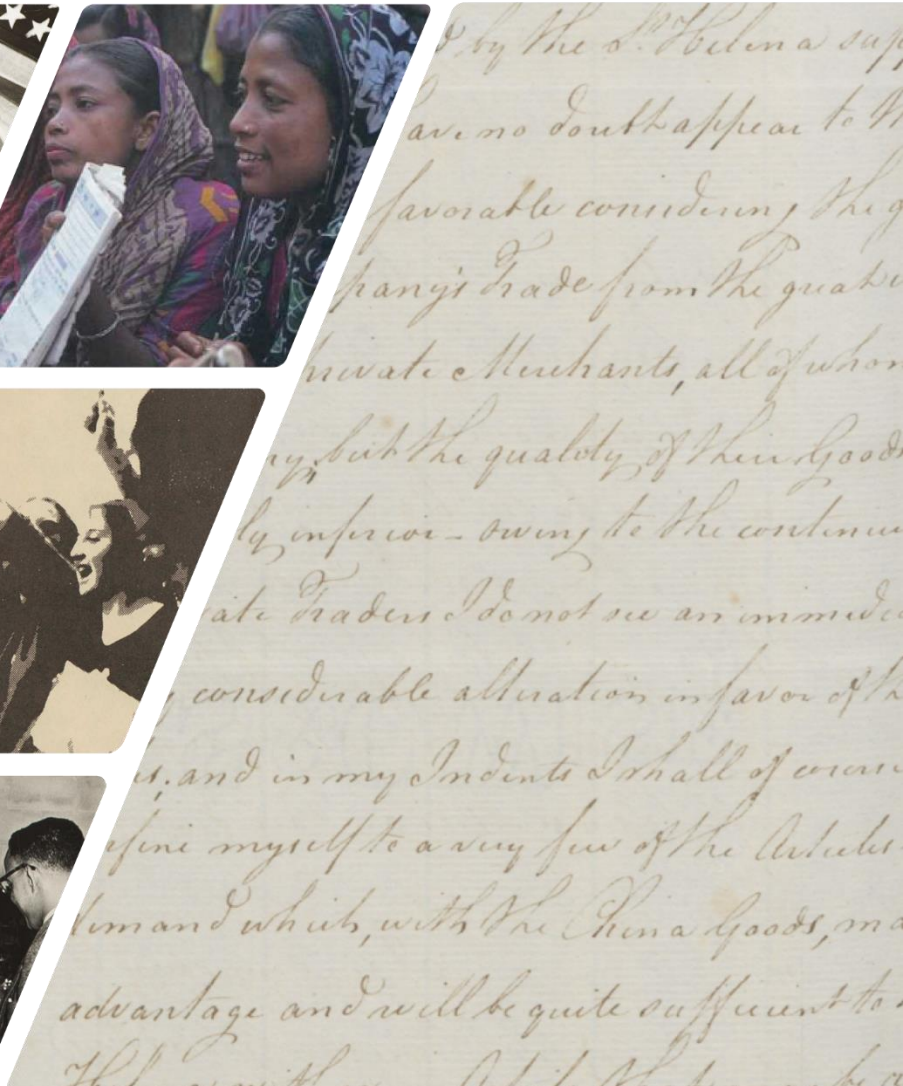 by the St. Helena
have no doubt appear to
favorable considering the
pany's Trade from the great
private Merchants, all of whom
but the quality of their Goods
ly inferior - owing to the continu
ate Traders I do not see an immedi
considerable alteration in favor of th
and in my Indents I shall of course
nfine myself to a very few of the Articles
demand which, with the China Goods, ma
advantage and will be quite sufficient to